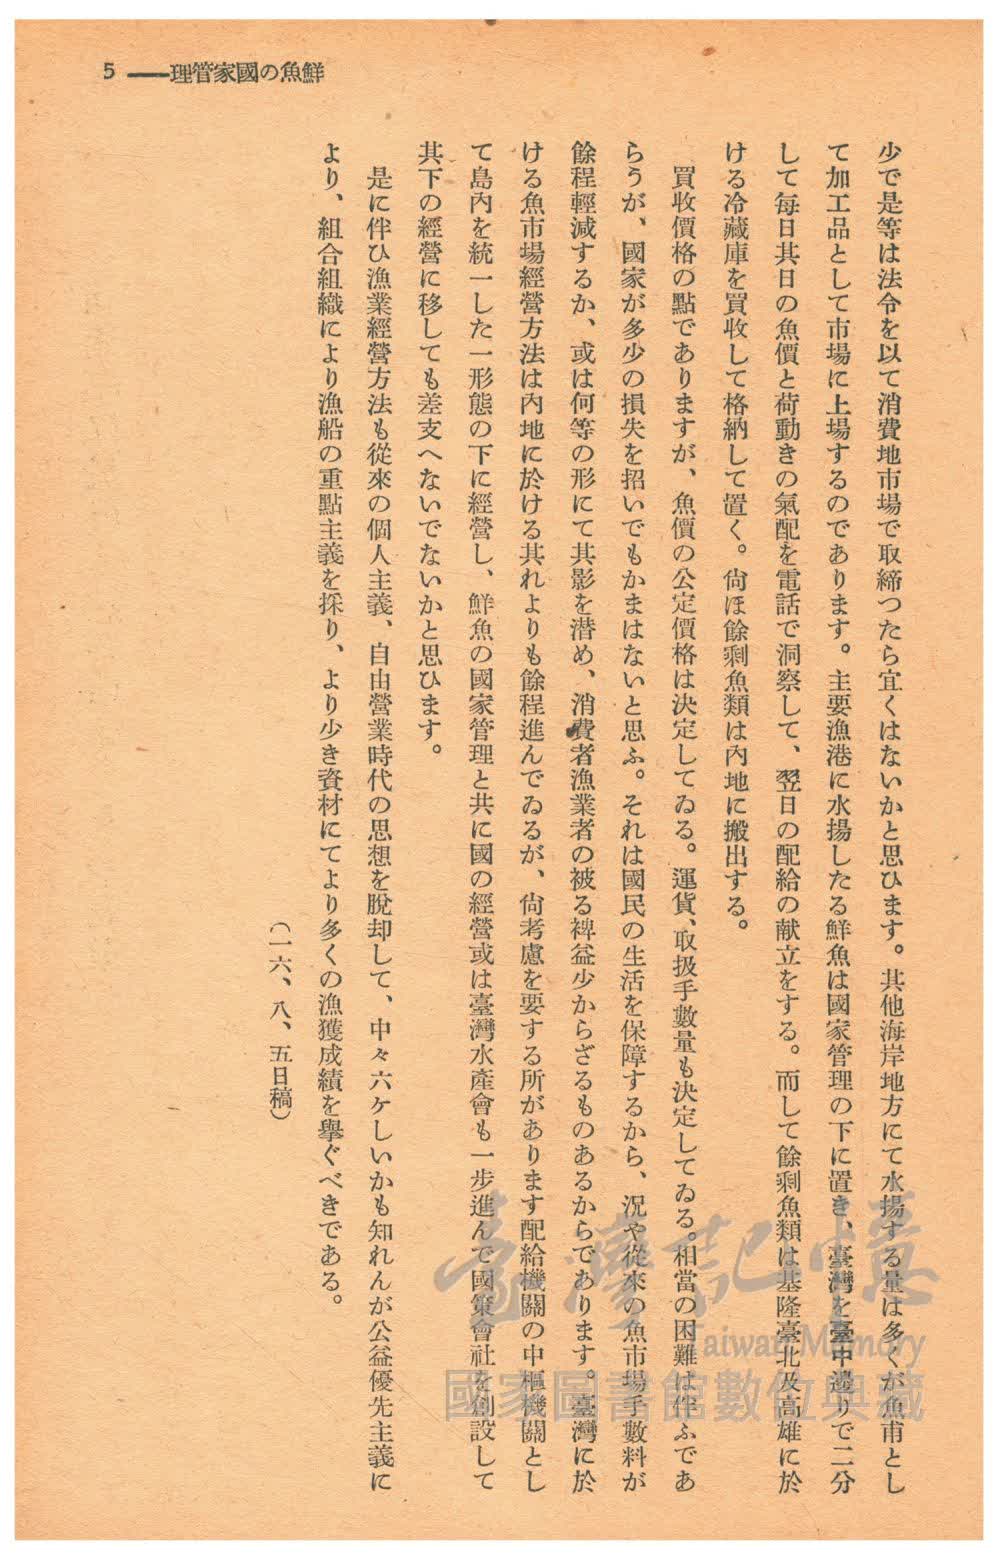 5 ——理管家國の魚鮮
少で是等は法令を以て消費地市場で取締つたら宜くはないかと思ひます。其他海岸地方にて水揚する量は多くが魚甫とし
て加工品として市場に上場するのであります。主要漁港に水揚したる鮮魚は國家管理の下に置き、臺灣を臺中邊りで二分
して每日其日の魚價と荷動きの氣配を電話で洞察して、翌日の配給の献立をする。而して餘剩魚類は基隆臺北及高雄に於
ける冷藏庫を買收して格納して置く。尙ほ餘剩魚類は內地に搬出する。
買收價格の點でありますが、魚價の公定價格は決定してゐる。運貨、取扱手數量も決定してゐる。相當の困難は伴ふであ
らうが、國家が多少の損失を招いでもかまはないと思ふ。それは國民の生活を保障するから、況や從來の魚市場手數料が
餘程輕減するか、或は何等の形にて其影を潜め、消費者漁業者の被る裨益少からざるものあるからであります。臺灣に於
ける魚市場經營方法は內地に於ける其れよりも餘程進んでゐるが、尙考慮を要する所があります配給機關の中樞機關とし
て島內を統一した一形態の下に經營し、鮮魚の國家管理と共に國の經營或は臺灣水產會も一步進んで國策會社を創設して
其下の經營に移しても差支へないでないかと思ひます。
是に伴ひ漁業經營方法も從來の個人主義、自由營業時代の思想を脫却して、中々六ケしいかも知れんが公益優先主義に
より、組合組織により漁船の重點主義を採り、より少き資材にてより多くの漁獲成績を擧ぐべきである。
（一六、八、五日稿）
臺灣記憶
Taiwan Memory
國家圖書館數位典藏